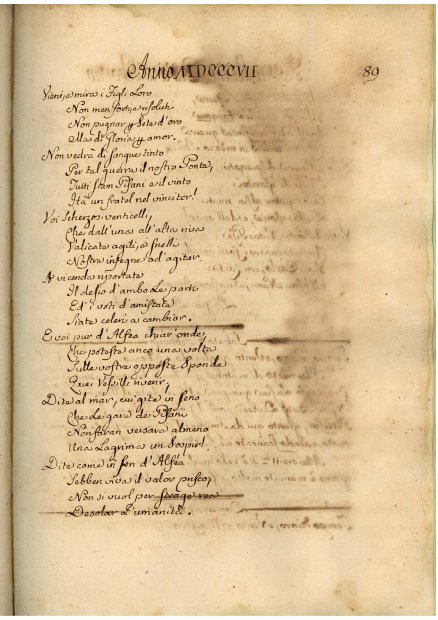 Anno MDCCCVII
89
Vieni, e mira i Figli Loro
Non men forti, e risoluti
Non pugnar p sete d'oro
Ma di Gloria, e amor.
Non vedrà di sangue tinto
Per tal guerra il nostro Ponte,
Tutti siam Pisani e il vinto
Ha un fratel nel vincitor!
Voi scherzosi venticelli,
Che dall'una all'alta riva
Valicate agili, e snelli
Nostre insegne ad agitar.
A vicenda riportate
Il desio d'ambo Le parti
Ed i voti d'amistate
Siate celeri a cambiar.
E voi pur d'Alfea chiar'onde,
Che poteste anco una volta
Sulle vostre opposte Sponde
Quei Vessilli riveder,
Dite al mar, cui gite in seno
Che Le gare de' Pisani
Non faran versare almeno
Una Lagrima un Sospir!
Dite come in sen d'Alféa
Sebben viva il valor prisco,
Non si vuol per
Desolar L'umanità.